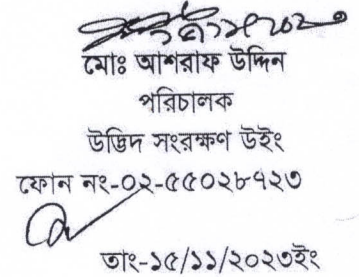 মোঃ আশরাফ উদ্দিন
পরিচালক
উদ্ভিদ সংরক্ষণ উইং
ফোন নং-০২-৫৫০২৮৭২৩
তাং-১৫/১১/২০২৩ইং